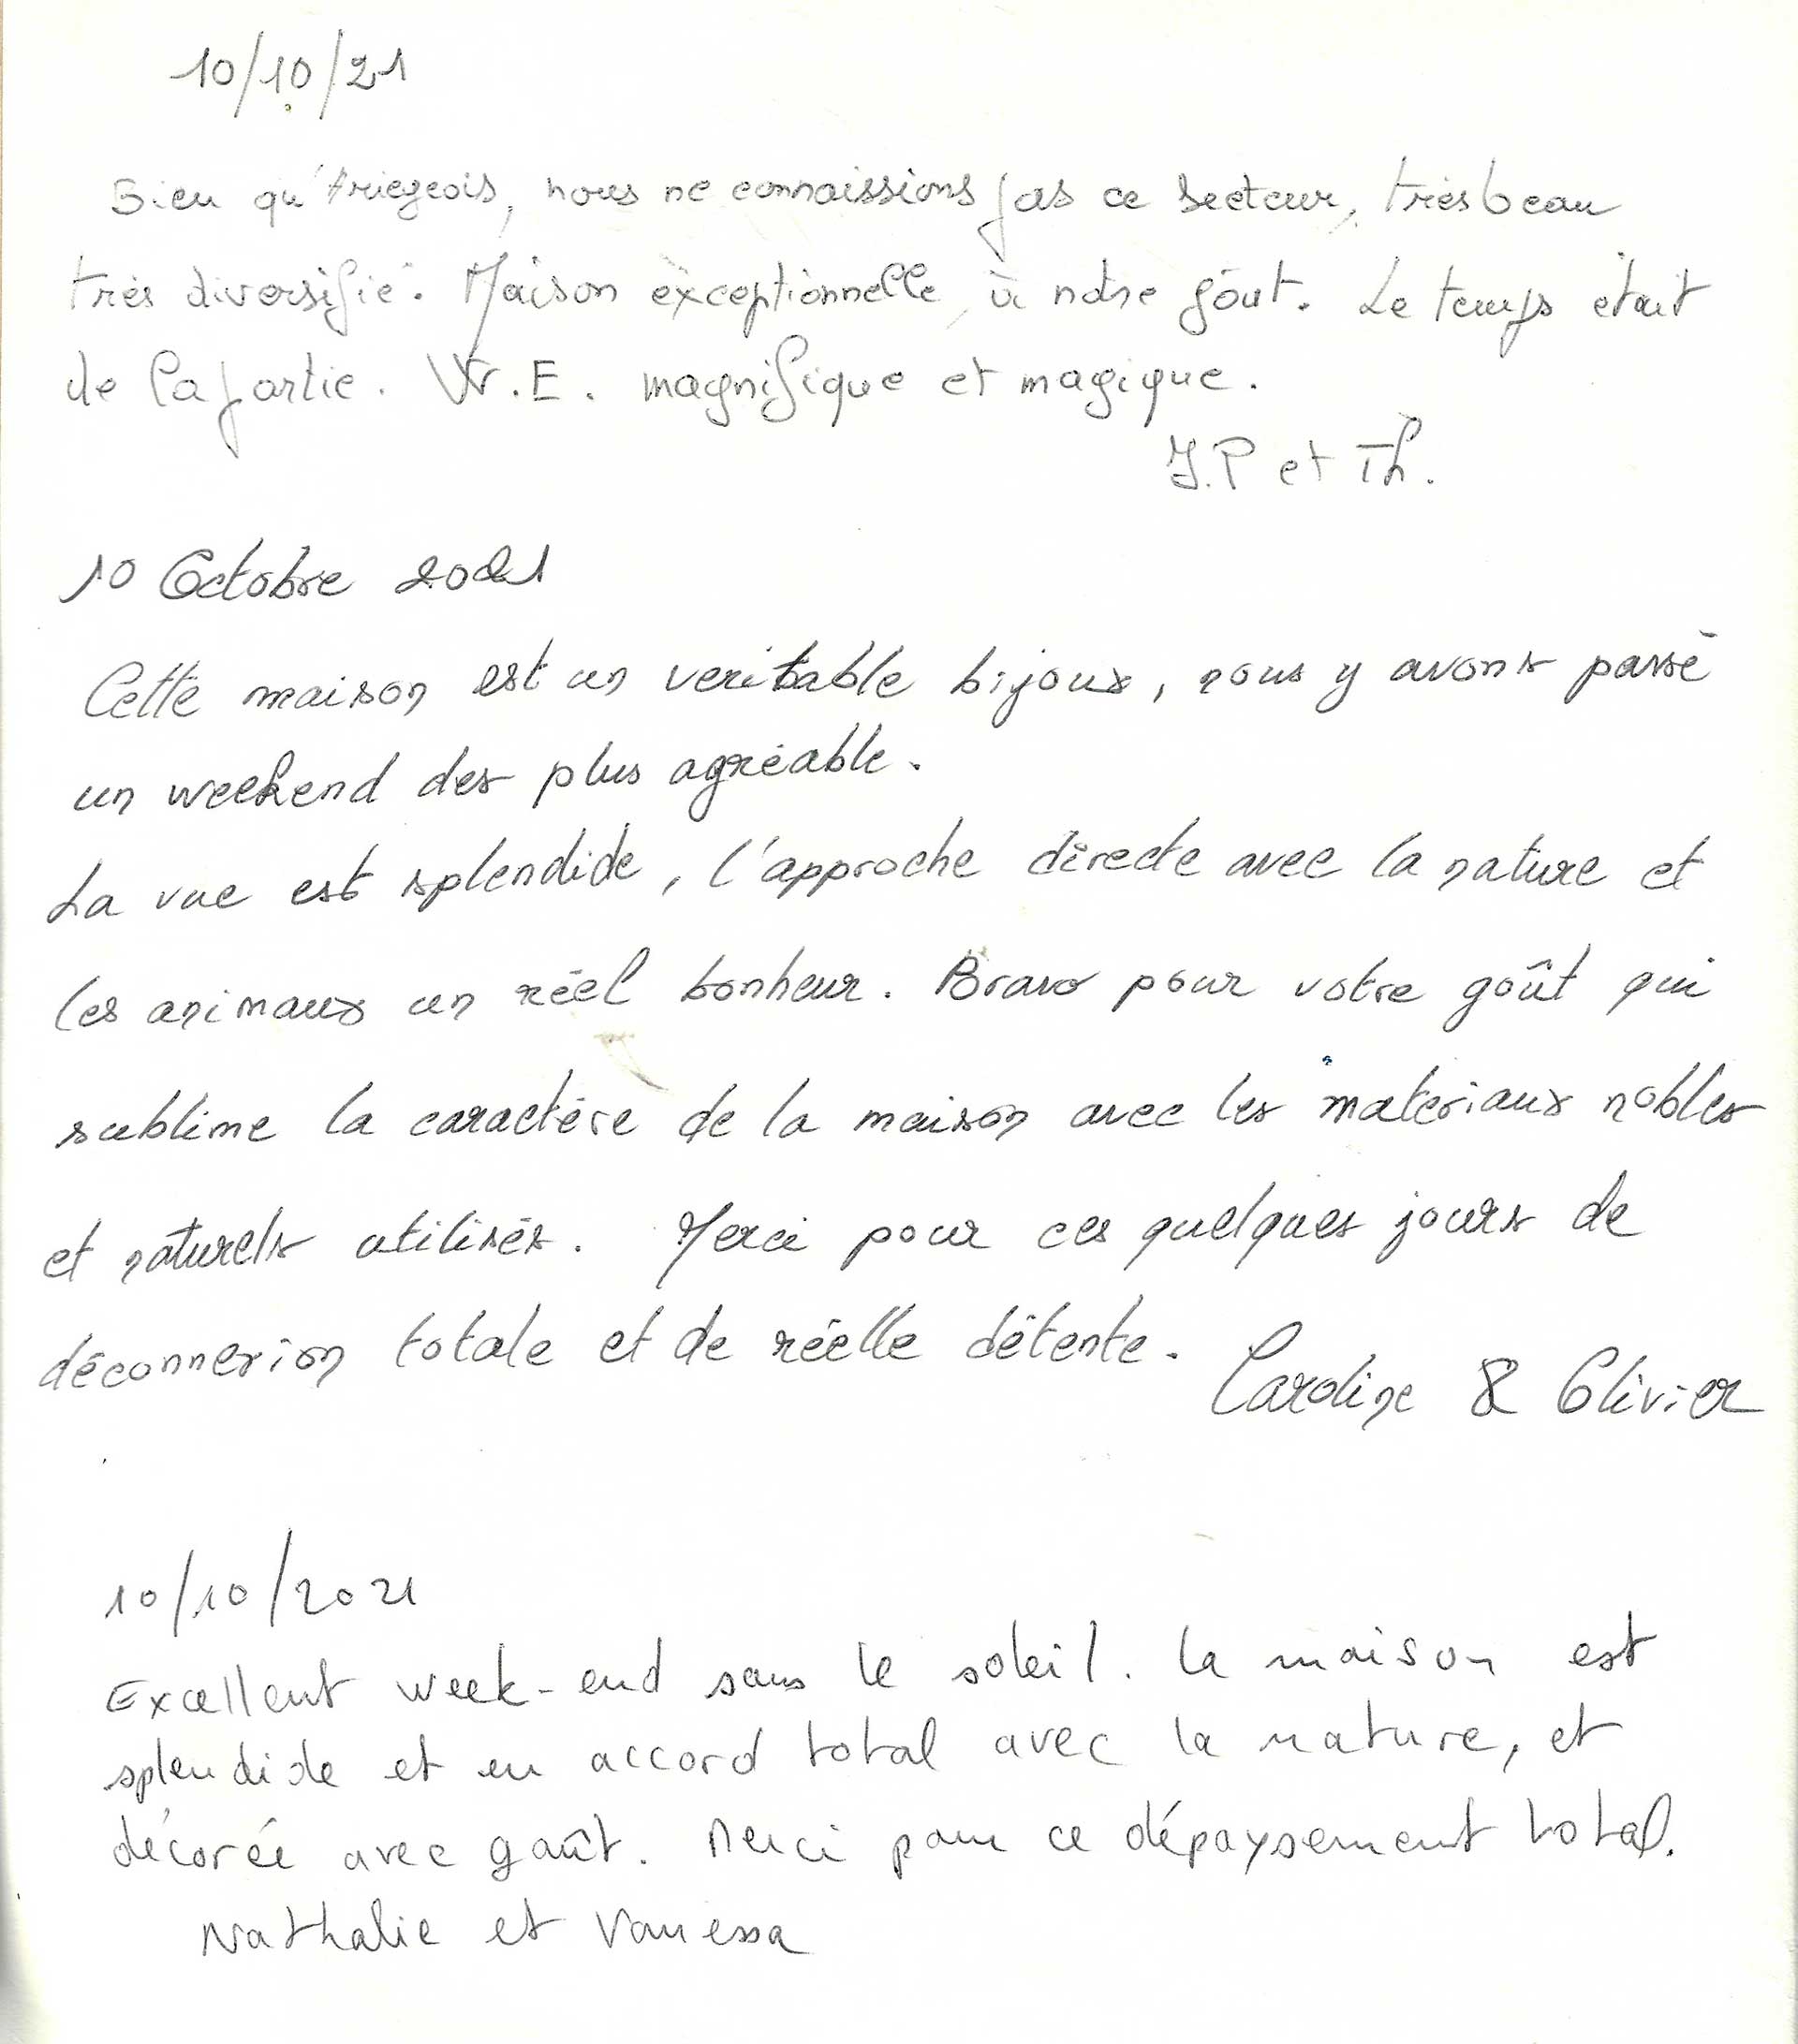 10/10/21
Bien qu'Ariégeois, nous ne connaissions pas ce secteur, très beau
très diversifié. Maison exceptionnelle, à notre goût. Le temps était
de la partie. W.E. magnifique et magique.
J.P et Th.
10 Octobre 2021
Cette maison est un veritable bijoux, nous y avons passé
un weekend des plus agréable.
La vue est splendide, l'approche directe avec la nature et
les animaux un réel bonheur. Bravo pour votre goût qui
sublime la caractère de la maison avec les materiaux nobles
et naturels utilisés. Merci pour ces quelques jours de
déconnexion totale et de réelle détente.
Caroline & Olivier
10/10/2021
Excellent week-end sous le soleil. la maison est
splendide et en accord total avec la nature, et
décorée avec goût. Merci pour ce dépaysement total.
Nathalie et Vanessa